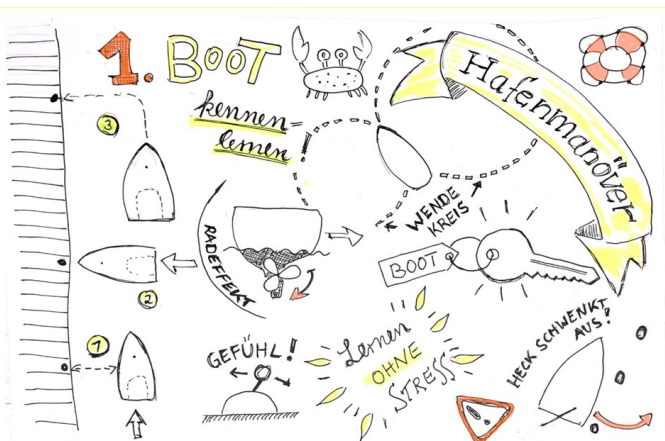 1. BOOT
kennen=
lernen
Hafenmanöver
3
WENDE
KREIS
RADEFFEKT
BOOT
2
1
GEFÜHL!
Lernen
OHNE
STRESS
HECK SCHWENKT
AUS!